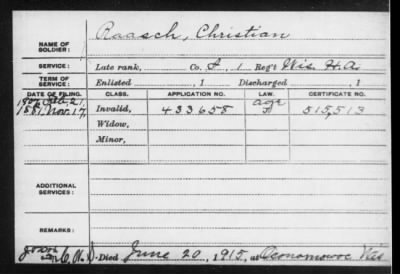 NAME OF SOLDIER: Raasch, Christian
SERVICE: Late rank, Co. I, 1 Reg't Wis. H.A.
TERM OF SERVICE: Enlisted , 1 Discharged , 1
DATE OF FILING. CLASS. APPLICATION NO. LAW. CERTIFICATE NO.
age
1881, Nov. 17, Invalid, 433658 515,513
Widow,
Minor,
ADDITIONAL SERVICES:
REMARKS:
Died June 20, 1915, at Oconomowoc Wis